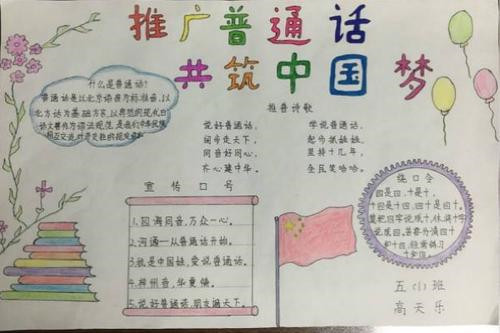 推广普通话
共筑中国梦
什么是普通话?
普通话是以北京语音为标准音,以
北方话为基础方言,以典范的现代白
话文著作为语法规范,是我们中华民族
相互交流
推普诗歌
说好普通话,
走天下,
同音好同心,
齐心建中华。
学说普通话,
起步抓娃娃,
坚持十几年,
全民笑哈哈。
宣传口号
1.四海同音,万众一心。
2.沟通—从普通话开始。
3.我是中国娃,爱说普通话。
4.神州音,华夏情。
5.说好普通话,朋友遍天下。
绕口令
四是四,十是十,
十四是十四,四十是四十。
莫把四字说成十,休将十字
说成四。若要分清四十
和十四,经常练习
十和四。
五(1)班
高天乐